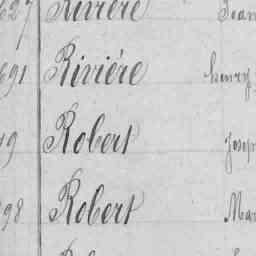 627 Rivière Jean
691 Rivière henry
19 Robert Josep
298 Robert Mar